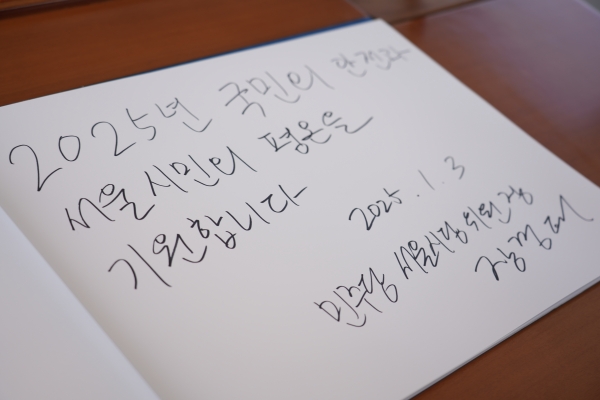 2025년 국민의 안전과
서울시민의 평온을
기원합니다
2025. 1. 3
민주당 서울시당위원장
장경태